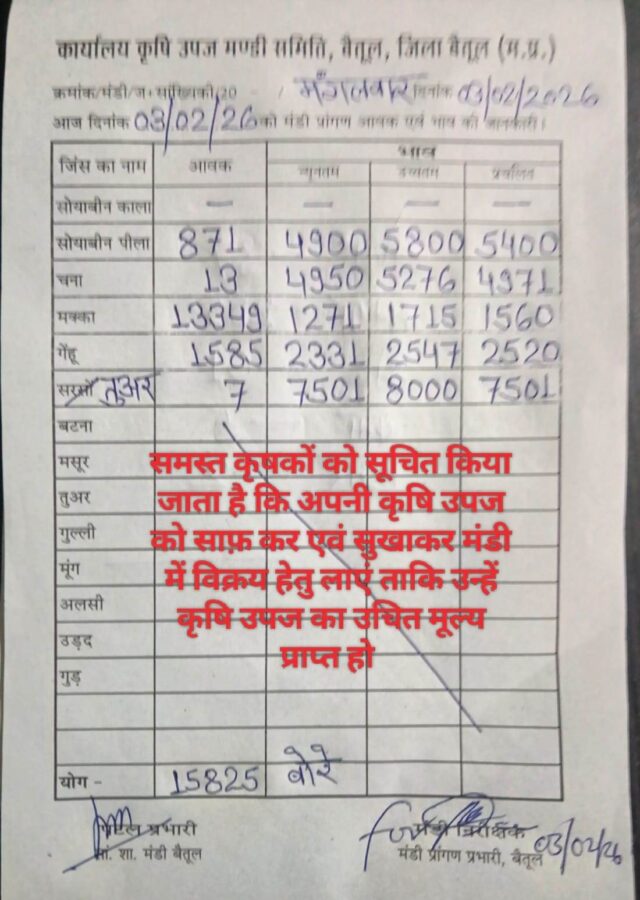 कार्यालय कृषि उपज मण्डी समिति, बैतूल, जिला बैतूल (म.प्र.)
क्रमांक/मंडी/ज. सांख्यिकी/20 - / मंगलवार दिनांक 03/02/2026
आज दिनांक 03/02/26 को मंडी प्रांगण आवक एवं भाव की जानकारी।
जिंस का नाम आवक भाव
न्यूनतम उच्चतम प्रचलित
सोयाबीन काला — — — —
सोयाबीन पीला 871 4900 5800 5400
चना 13 4950 5276 4971
मक्का 13349 1271 1715 1560
गेंहू 1585 2331 2547 2520
सरसों तुअर 7 7501 8000 7501
बटना
मसूर
तुअर
गुल्ली
मूंग
अलसी
उड़द
गुड़
समस्त कृषकों को सूचित किया
जाता है कि अपनी कृषि उपज
को साफ़ कर एवं सुखाकर मंडी
में विक्रय हेतु लाएं ताकि उन्हें
कृषि उपज का उचित मूल्य
प्राप्त हो
योग - 15825 बोरे
प्रभारी
सां. शा. मंडी बैतूल
मंडी निरीक्षक
मंडी प्रांगण प्रभारी, बैतूल 03/02/26